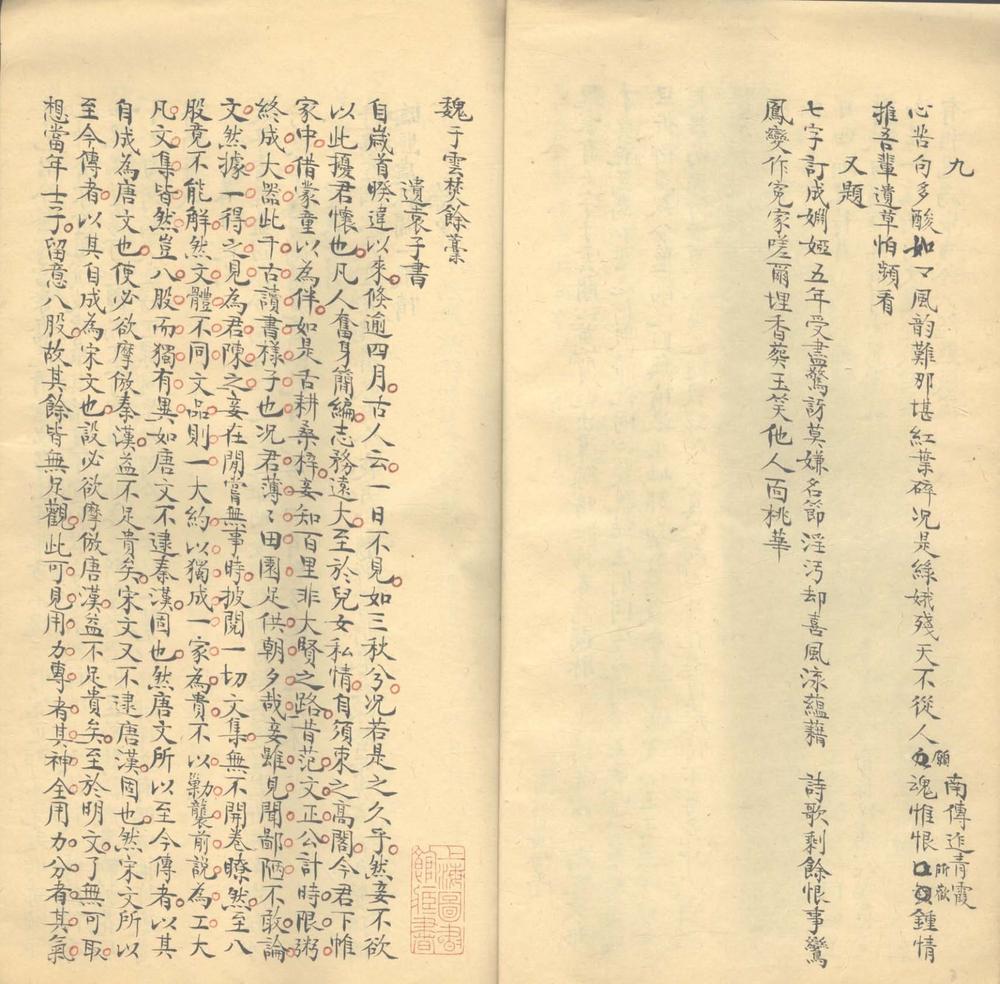 九
南傳青霞
心苦句多酸如〻風韵難那堪紅葉碎况是綠娥殘天不從人願魂惟恨所歡鍾情
推吾輩遺草怕頻看
又題
七字訂成婣婭五年受盡驚訝莫嫌名節淫污却喜風流蘊藉 詩歌剩餘恨事鸞
鳳變作寃家嗟爾埋香葬玉笑他人面桃華
魏于雲焚餘藁
遺袁子書
自歲首暌違以來倏逾四月古人云一日不見如三秋兮况若是之久乎然妾不欲
以此擾君懷也凡人奮身簡編志務遠大至於兒女私情自須束之高閣今君下帷
家中借蒙童以為伴如是舌耕桑梓妾知百里非大賢之路昔范文正公計時限粥
終成大器此千古讀書樣子也况君薄〻田園足供朝夕哉妾雖見聞鄙陋不敢論
文然據一得之見為君陳之妾在閒嘗無事時披閱一切文集無不開卷瞭然至八
股竟不能解然文體不同文品則一大約以獨成一家為貴不以勦襲前説為工大
凡文集皆然豈八股而獨有異如唐文不逮秦漢固也然唐文所以至今傳者以其
自成為唐文也便必欲摩倣秦漢益不足貴矣宋文又不逮唐漢固也然宋文所以
至今傳者以其自成為宋文也設必欲摩倣唐漢益不足貴矣至於明文了無可取
想當年士子留意八股故其餘皆無足觀此可見用力專者其神全用力分者其氣
上海圖書館藏書